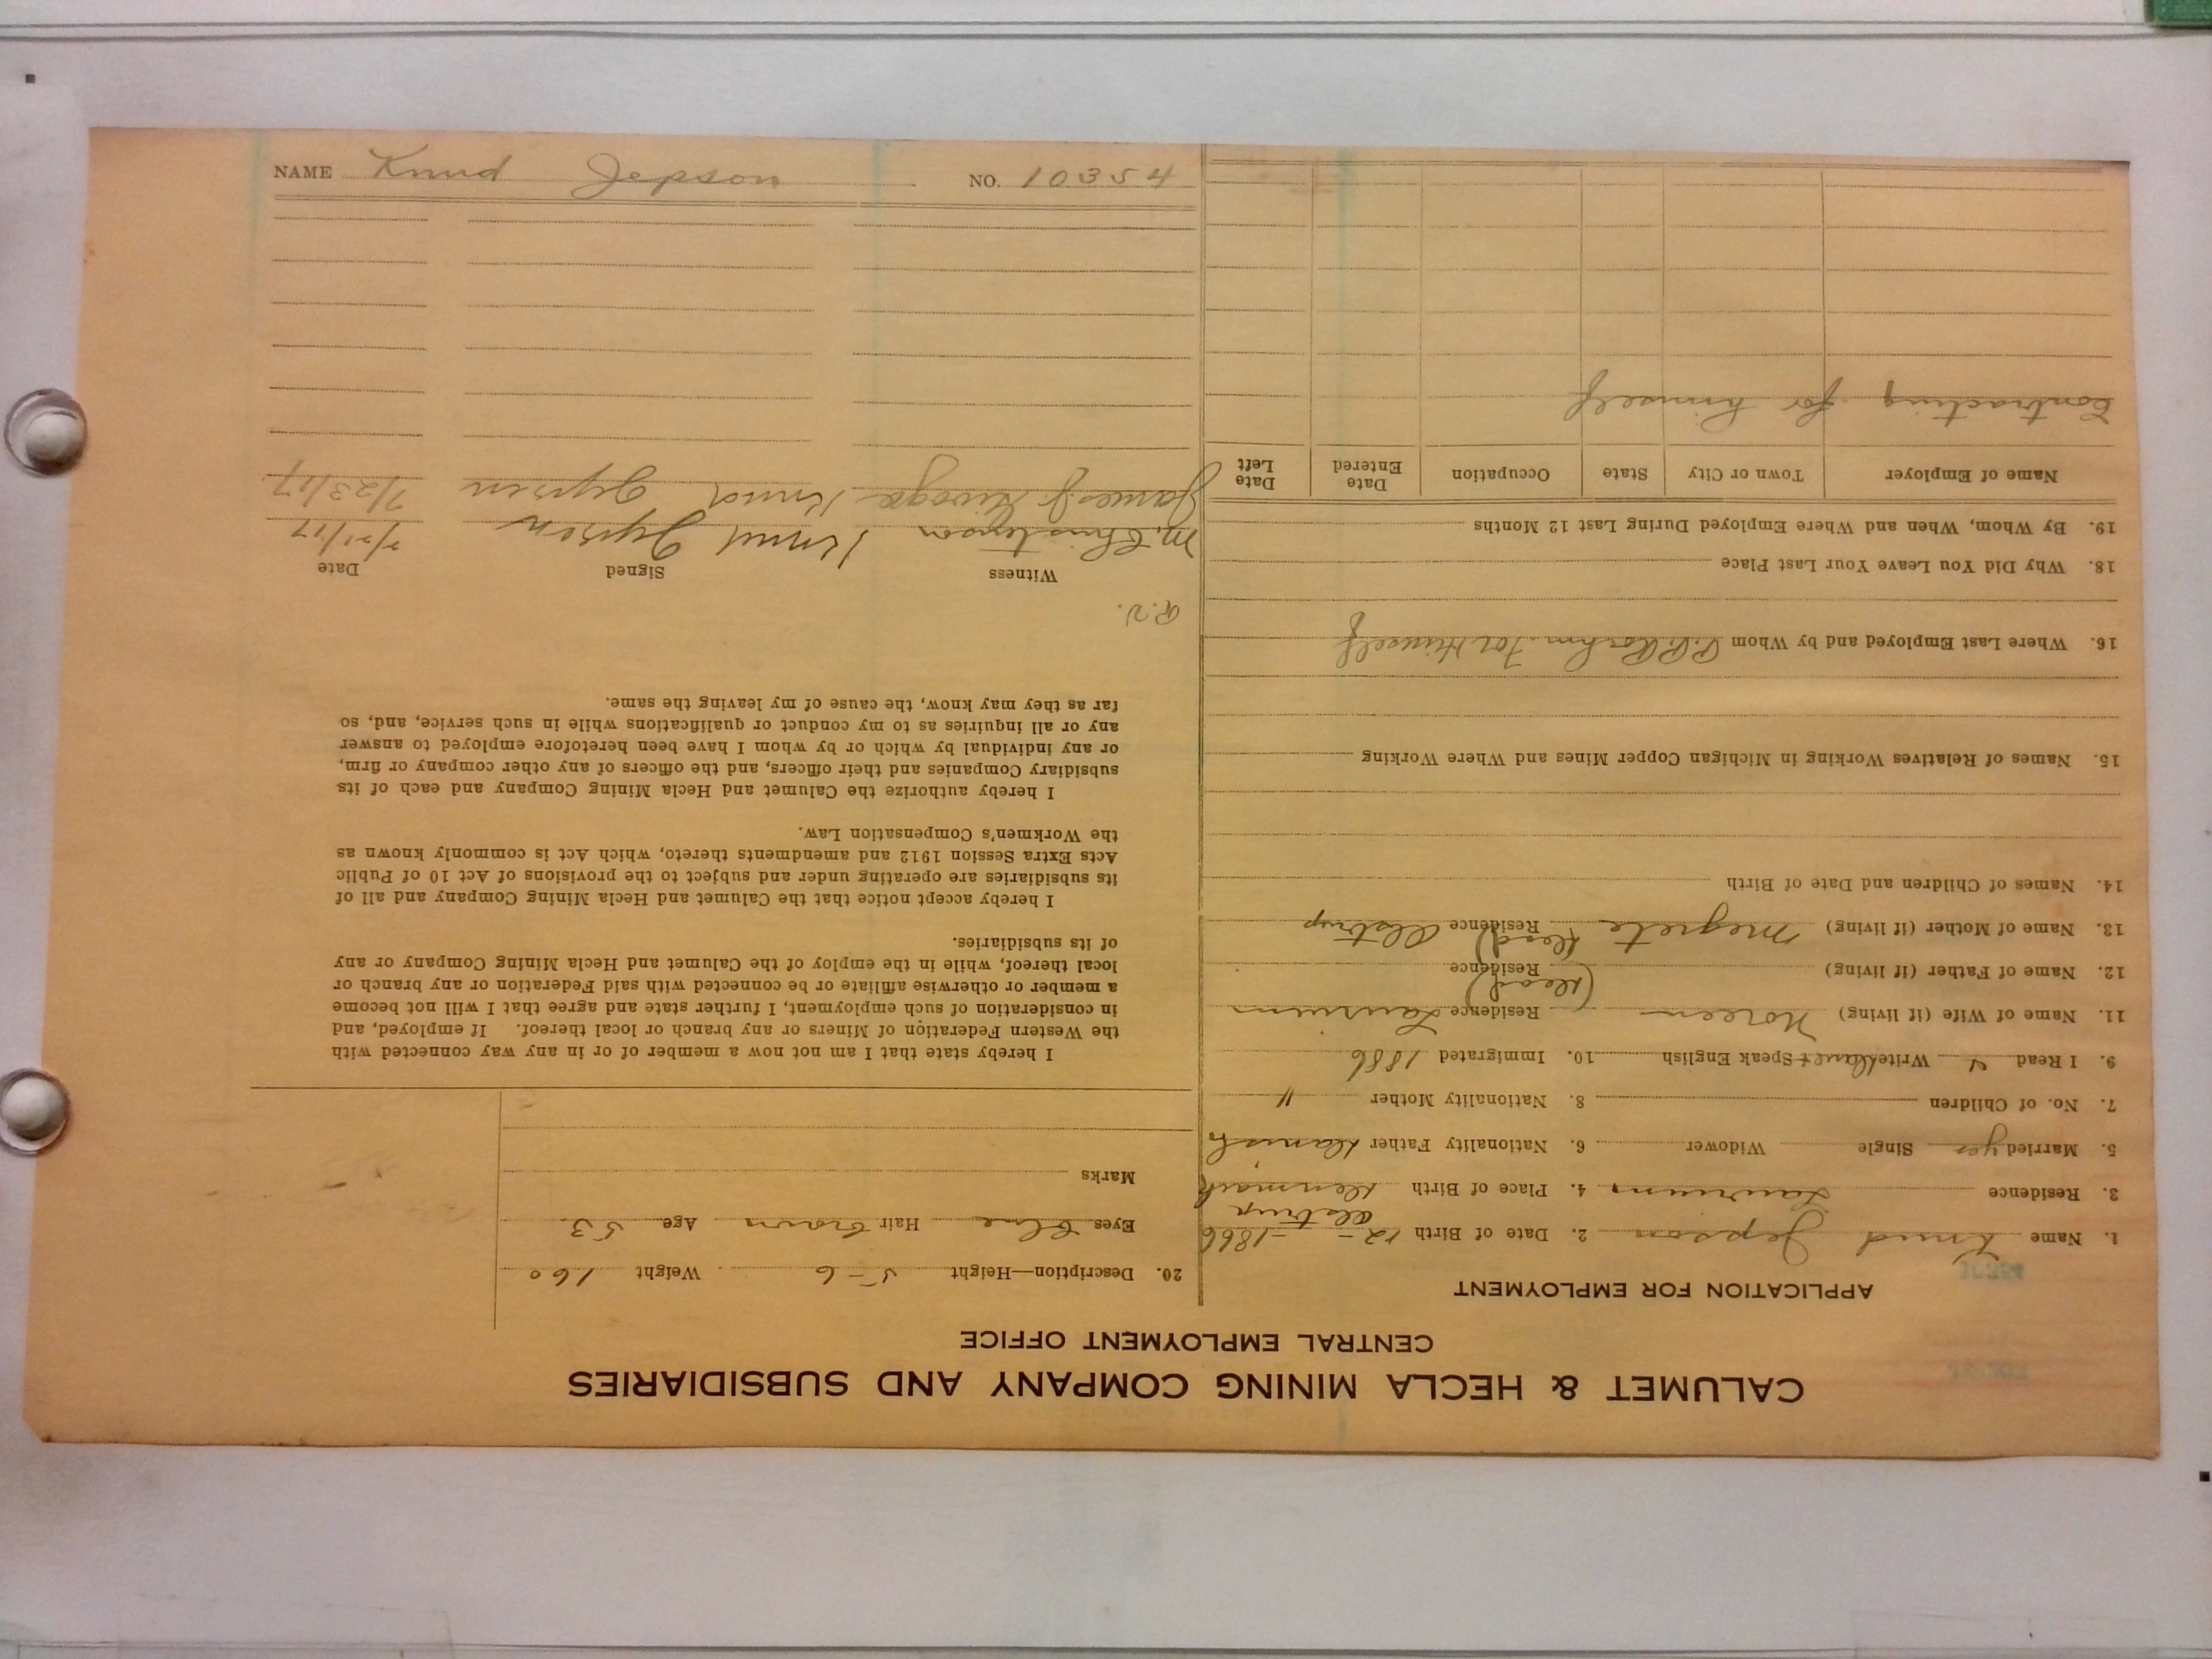 CALUMET & HECLA MINING COMPANY AND SUBSIDIARIES
CENTRAL EMPLOYMENT OFFICE
APPLICATION FOR EMPLOYMENT
1. Name Knud Jepson 2. Date of Birth 12 - - 1866
Alstrup
3. Residence Laurium, 4. Place of Birth Denmark
5. Married yes Single Widower 6. Nationality Father Danish
7. No. of Children 8. Nationality Mother "
9. I Read Write Speak English 10. Immigrated 1886
11. Name of Wife (if living) Noreen Residence Laurium
12. Name of Father (if living) (Dead) Residence
13. Name of Mother (if living) Megreta (Dead) Residence Alstrup
14. Names of Children and Date of Birth
15. Names of Relatives Working in Michigan Copper Mines and Where Working
16. Where Last Employed and by Whom For Himself
18. Why Did You Leave Your Last Place
19. By Whom, When and Where Employed During Last 12 Months
Name of Employer Town or City State Occupation Date Entered Date Left
Contracting for himself
20. Description—Height 5-6 Weight 160
Eyes Blue Hair Brown Age 53
Marks
I hereby state that I am not now a member of or in any way connected with
the Western Federation of Miners or any branch or local thereof. If employed, and
in consideration of such employment, I further state and agree that I will not become
a member or otherwise affiliate or be connected with said Federation or any branch or
local thereof, while in the employ of the Calumet and Hecla Mining Company or any
of its subsidiaries.
I hereby accept notice that the Calumet and Hecla Mining Company and all of
its subsidiaries are operating under and subject to the provisions of Act 10 of Public
Acts Extra Session 1912 and amendments thereto, which Act is commonly known as
the Workmen's Compensation Law.
I hereby authorize the Calumet and Hecla Mining Company and each of its
subsidiary Companies and their officers, and the officers of any other company or firm,
or any individual by which or by whom I have been heretofore employed to answer
any or all inquiries as to my conduct or qualifications while in such service, and, so
far as they may know, the cause of my leaving the same.
Witness Signed Date
M. Christenson Knud Jepsen
James J Knud Jepsen 7/23/17
NAME Knud Jepson NO. 10354